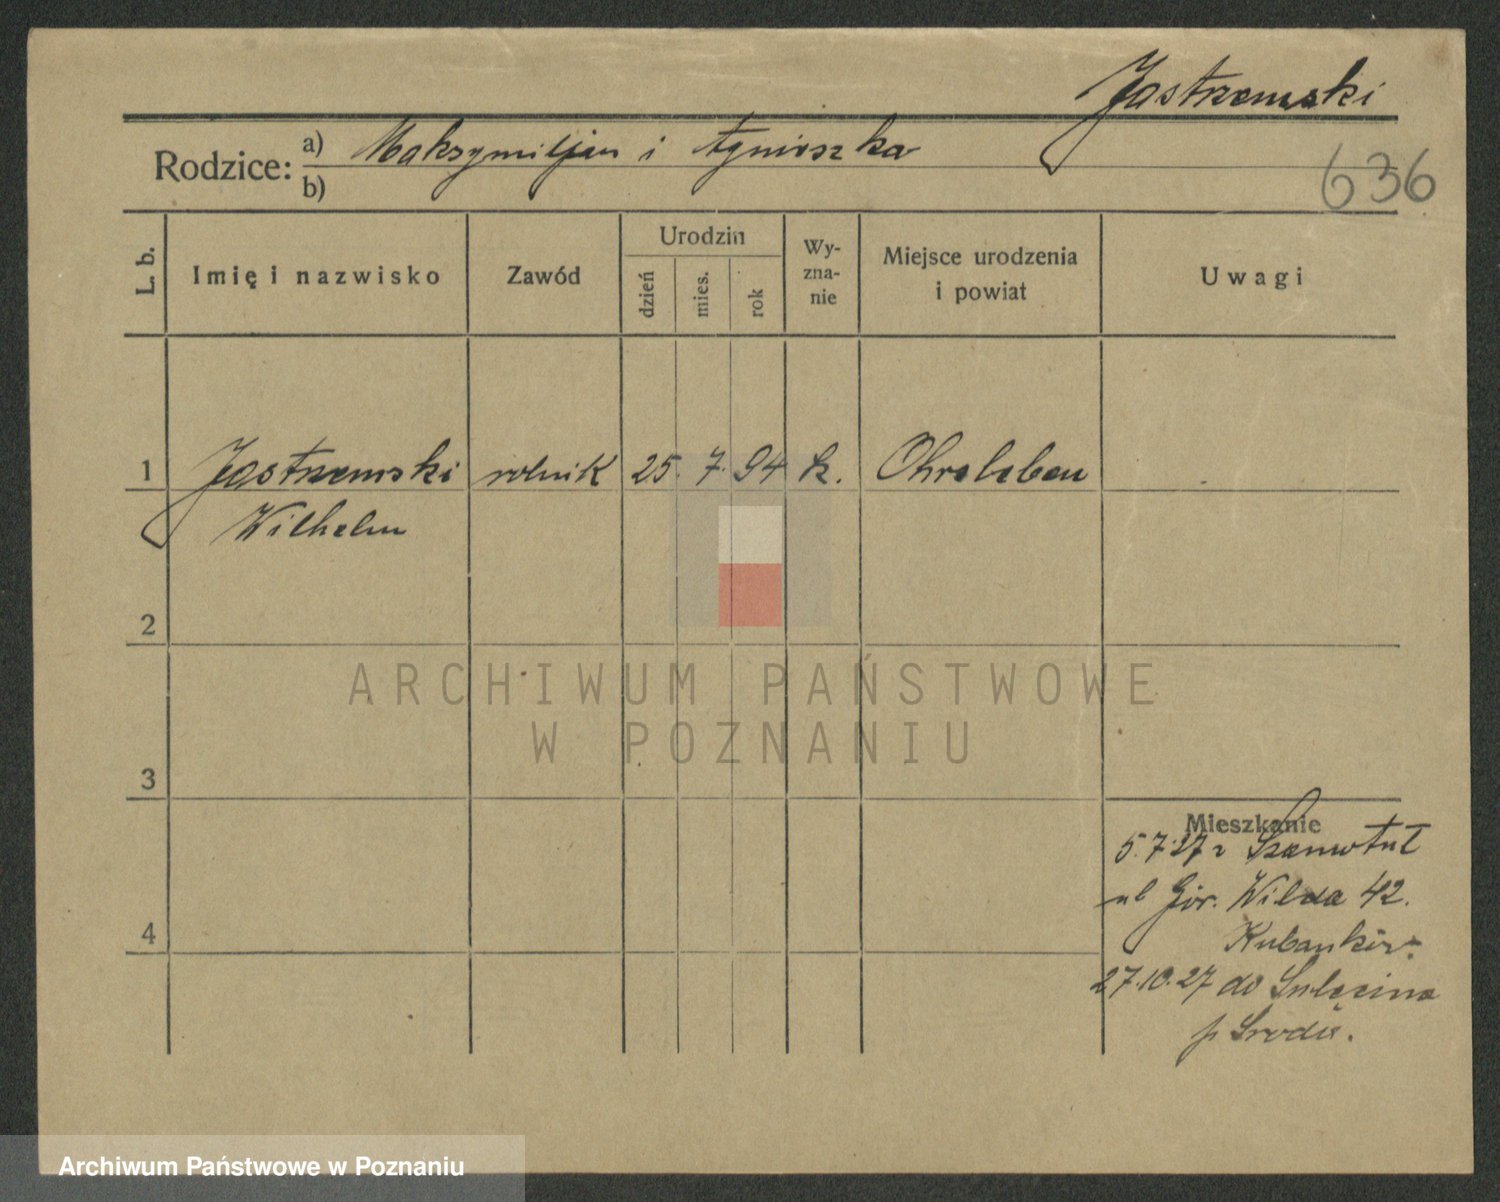 Jastrzemski
Rodzice: a) Maksymiljan i Agnieszka
b)
636
L. b.
Imię i nazwisko
Zawód
Urodzin
dzień
mies.
rok
Wy-
zna-
nie
Miejsce urodzenia
i powiat
Uwagi
1 Jastrzemski rolnik 25. 7. 94 k. Ohrsleben
Wilhelm
2
3
4
Mieszkanie
5.7.27 z Szamotuł
ul Gór. Wilda 42.
27.10.27 do Sulęcina
p Środa.
ARCHIWUM PAŃSTWOWE
W POZNANIU
Archiwum Państwowe w Poznaniu